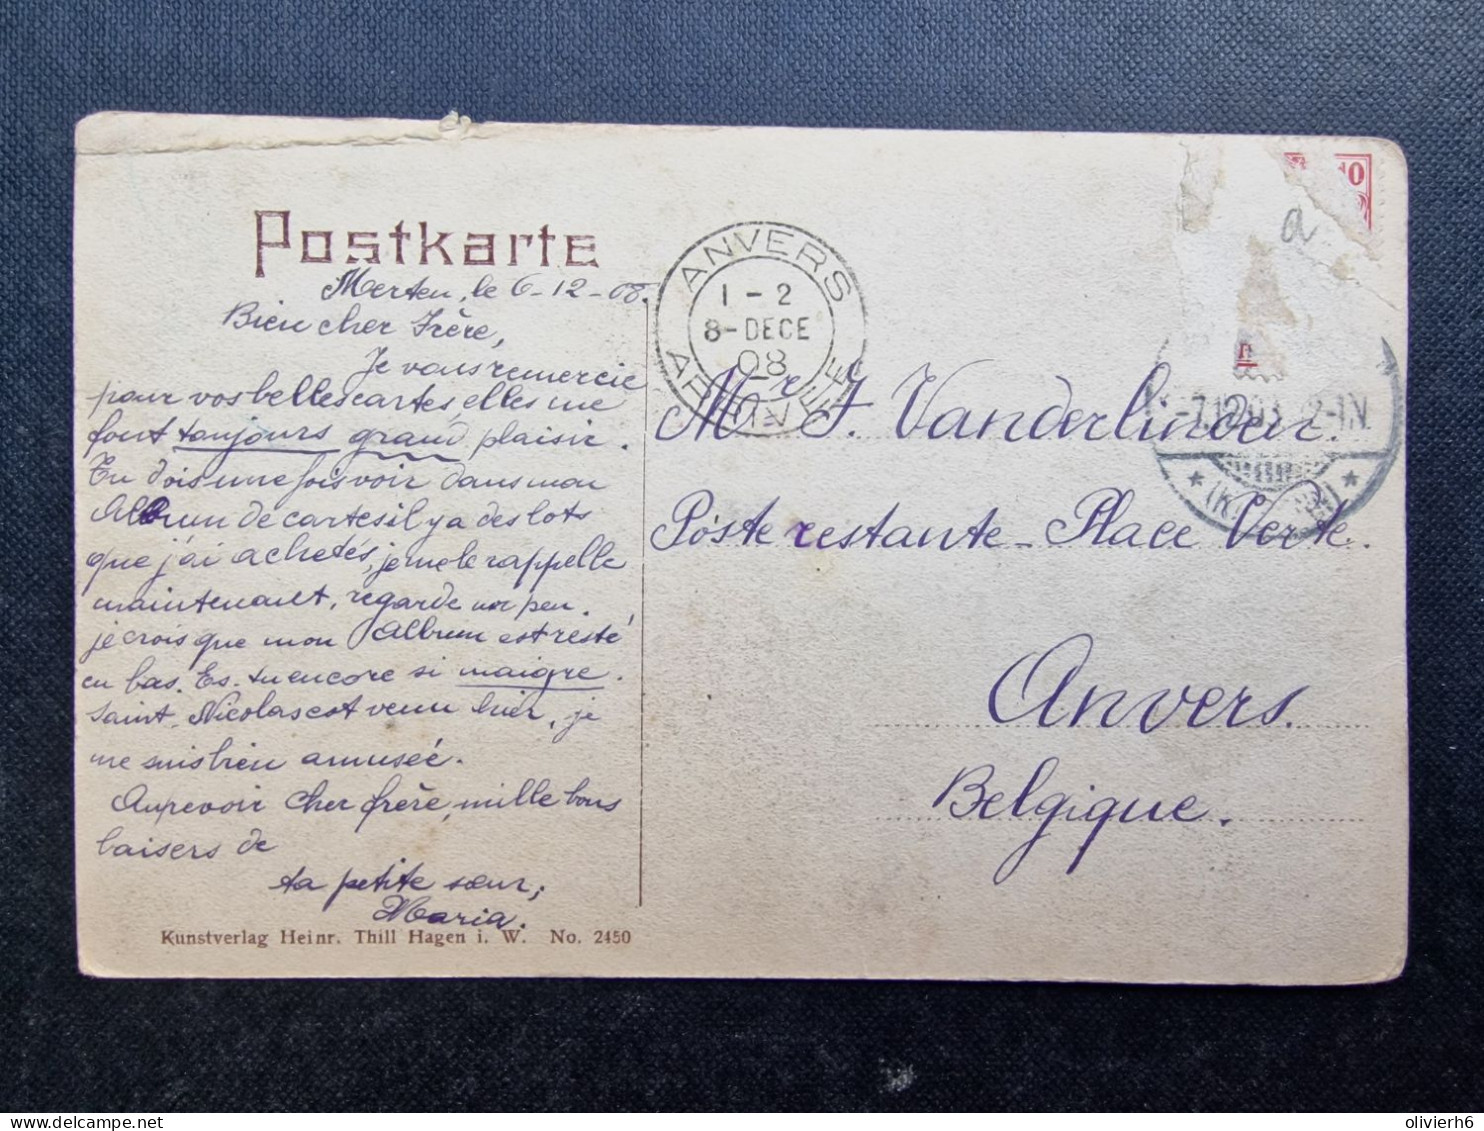 Postkarte
Merten, le 6-12-08.
Bien cher Frère,
Je vous remercie
pour vos belles cartes, elles me
font toujours grand plaisir.
Tu dois une fois voir dans mon
Album de cartes il y a des lots
que j'ai achetés, je me le rappelle
maintenant, regarde un peu.
je crois que mon Album est resté
en bas. Es-tu encore si maigre.
Saint Nicolas est venu hier, je
me suis bien amusée.
Aurevoir cher frère, mille bons
baisers de
ta petite sœur,
Maria.
Kunstverlag Heinr. Thill Hagen i. W. No. 2450
ANVERS
1-2
8-DECE
08
10
a
n
-7.12.08 12-1N.
Mr J. Vanderlinden.
Poste restante - Place Verte.
Anvers.
Belgique.
olivierh6